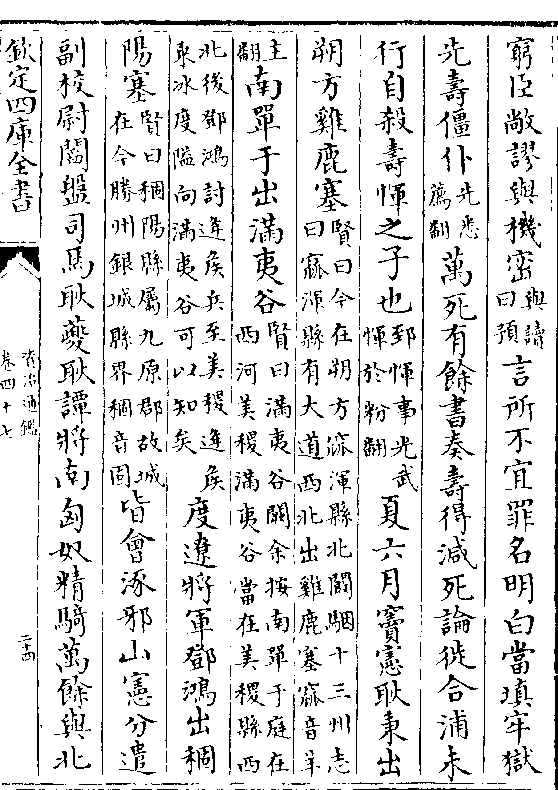 窮臣敞謬與機宻與讀曰預言所不宜罪名明白當填牢獄
先壽僵仆先悉薦翻萬死有餘書奏壽得減死論徙合浦未
行自殺壽惲之子也郅惲事光武惲於粉翻夏六月竇憲耿秉出
朔方雞鹿塞賢曰今在朔方窳渾縣北闞駰十三州志曰窳渾縣有大道西北出雞鹿塞窳音羊
主翻南單于出滿夷谷賢曰滿夷谷闕余按南單于庭在西河美稷滿夷谷當在美稷縣西
北後鄧鴻討逢侯兵至美稷逢侯乘冰度隘向滿夷谷可以知矣度遼將軍鄧鴻出稒
陽塞賢曰稒陽縣屬九原郡故城在今勝州銀城縣界稒音固皆會涿邪山憲分遣
副校尉閻盤司馬耿夔耿譚將南匈奴精騎萬餘與北
欽定四庫全書
資治通鑑
卷四十七
二十四